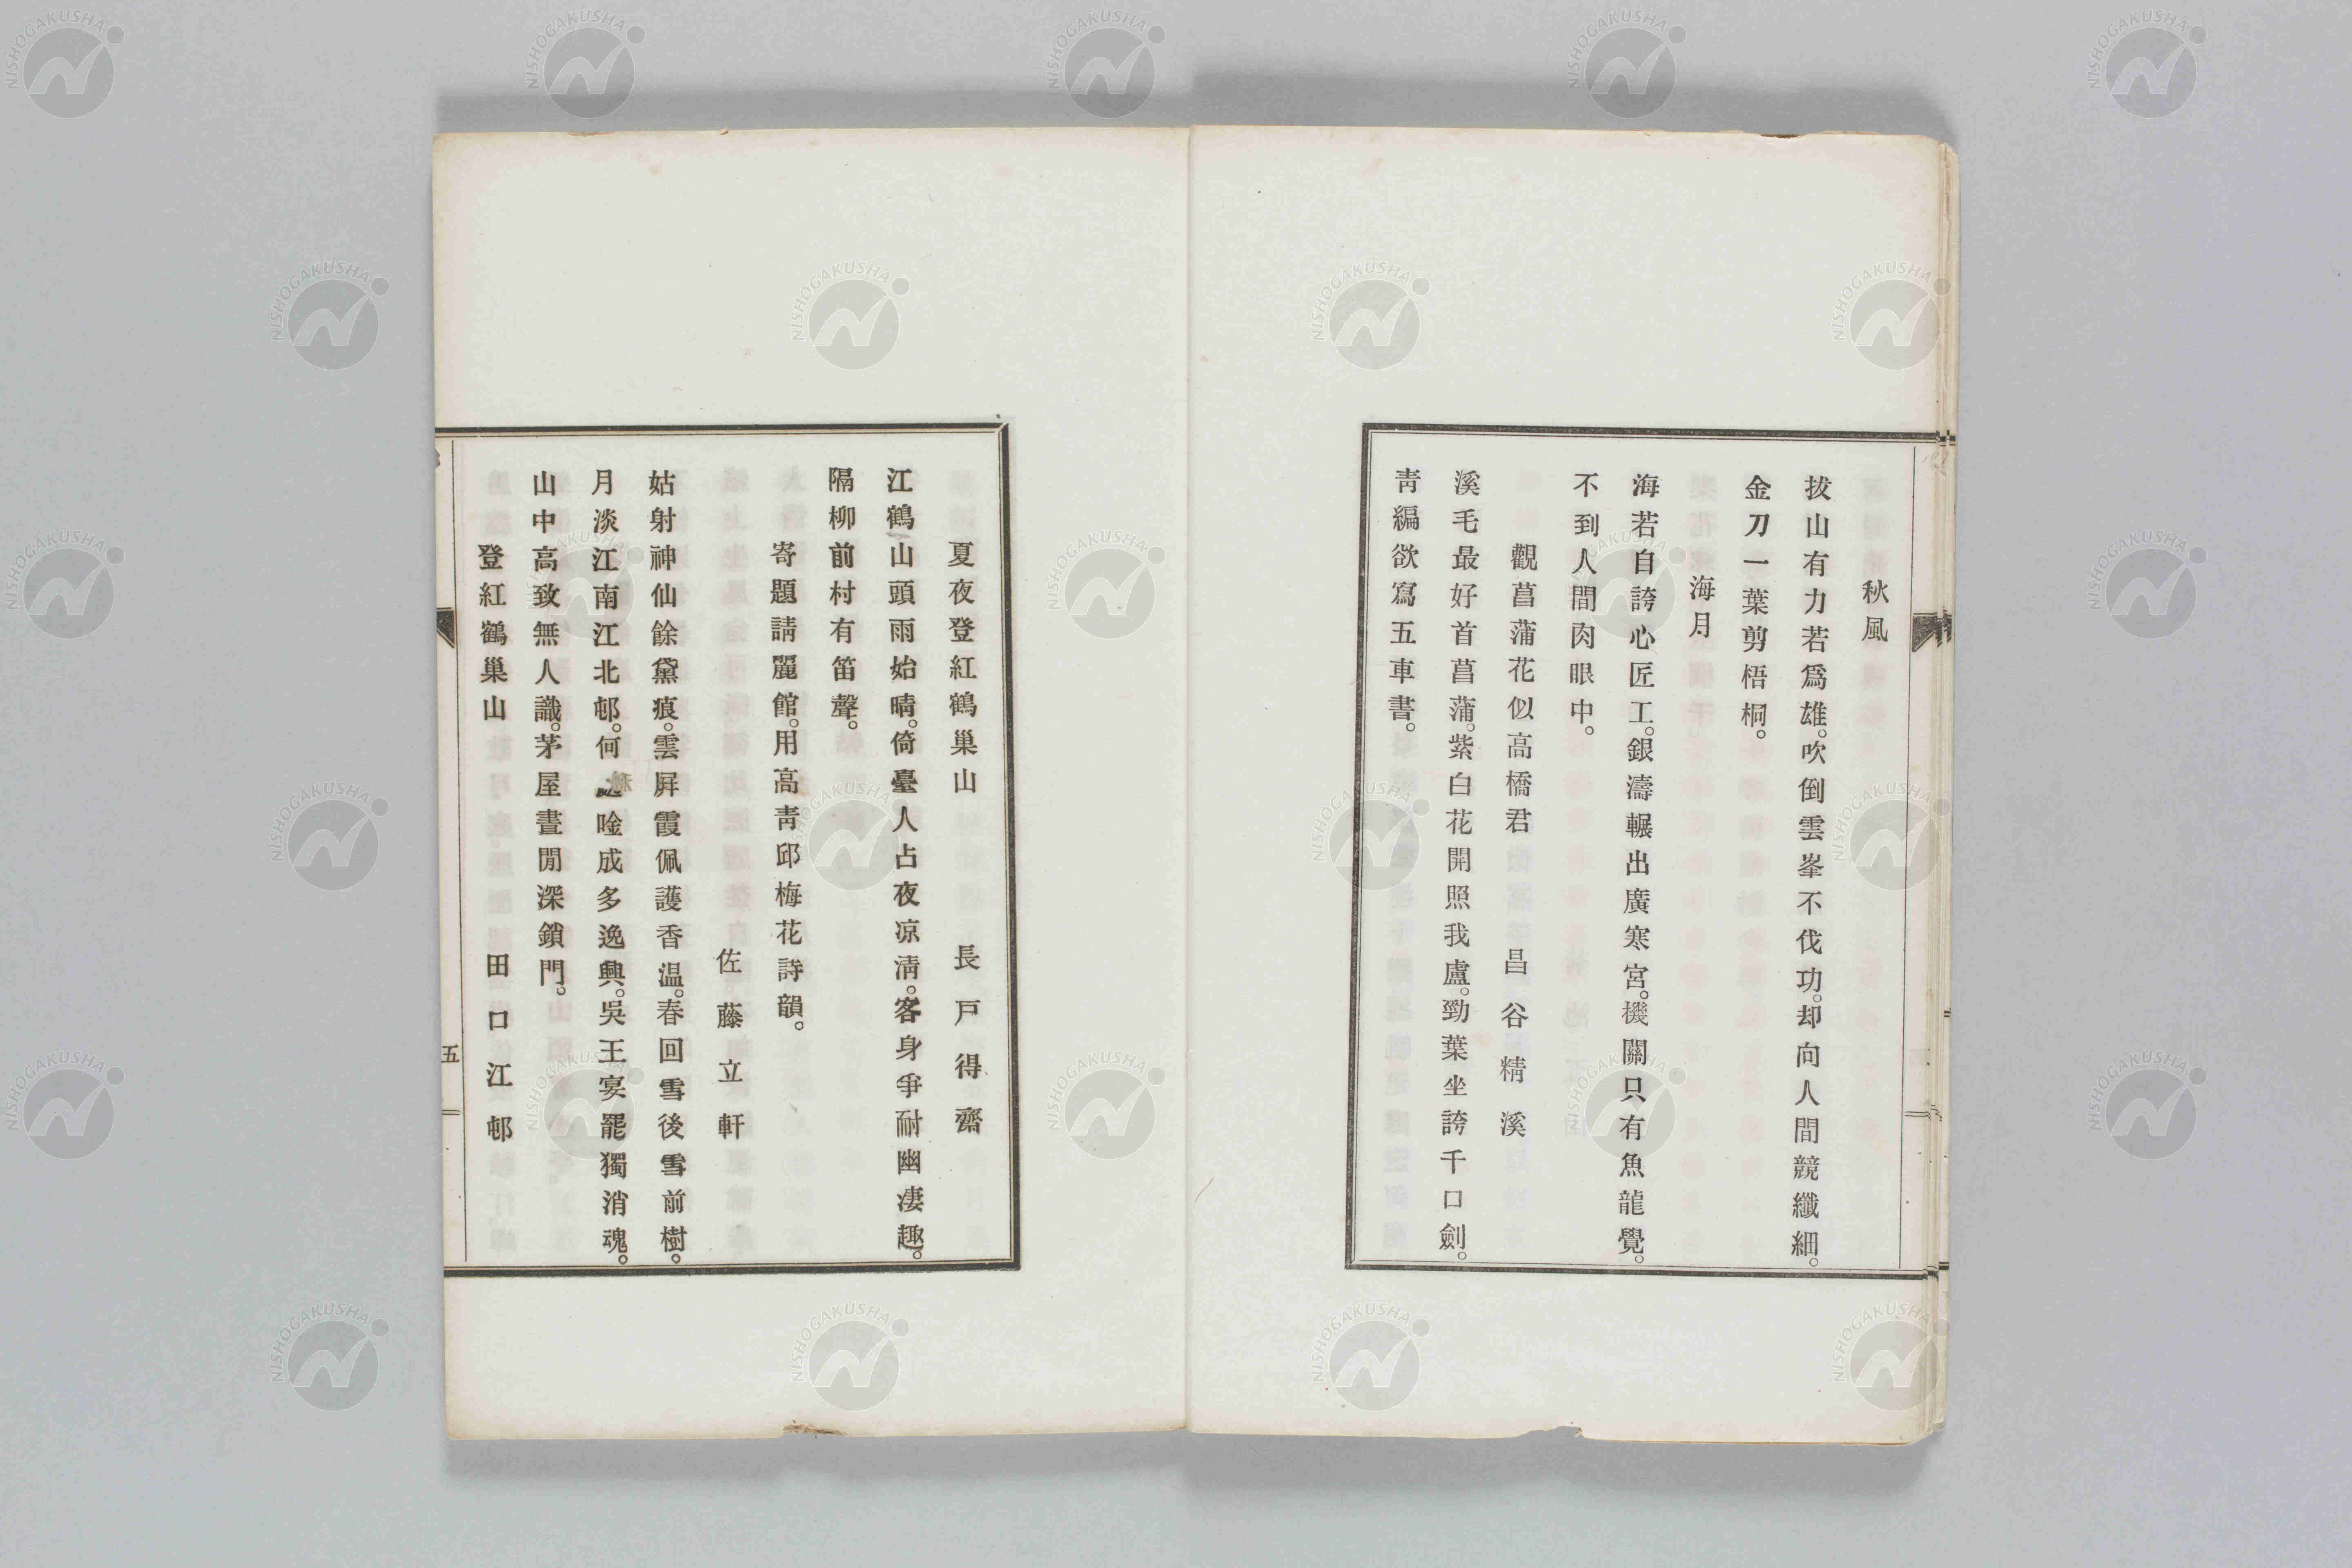 秋風
拔山有力若爲雄。吹倒雲峯不伐功。却向人間競纖細。
金刀一葉剪梧桐。
海月
海若自誇心匠工。銀濤輾出廣寒宮。機關只有魚龍覺。
不到人間肉眼中。
觀菖蒲花似高橋君 昌谷精溪
溪毛最好首菖蒲。紫白花開照我盧。勁葉坐誇千口劍。
靑編欲寫五車書。
夏夜登紅鶴巢山 長戸得齋
江鶴山頭雨始晴。倚臺人占夜凉淸。客身爭耐幽凄趣。
隔柳前村有笛聲。
寄題請麗館。用高靑邱梅花詩韻。
佐藤立軒
姑射神仙餘黛痕。雲屛霞佩護香温。春回雪後雪前樹。
月淡江南江北邨。何 唫成多逸興。吳王宴罷獨消魂。
山中高致無人識。茅屋晝閒深鎖門。
登紅鶴巢山 田口江邨
五
NISHOGAKUSHA